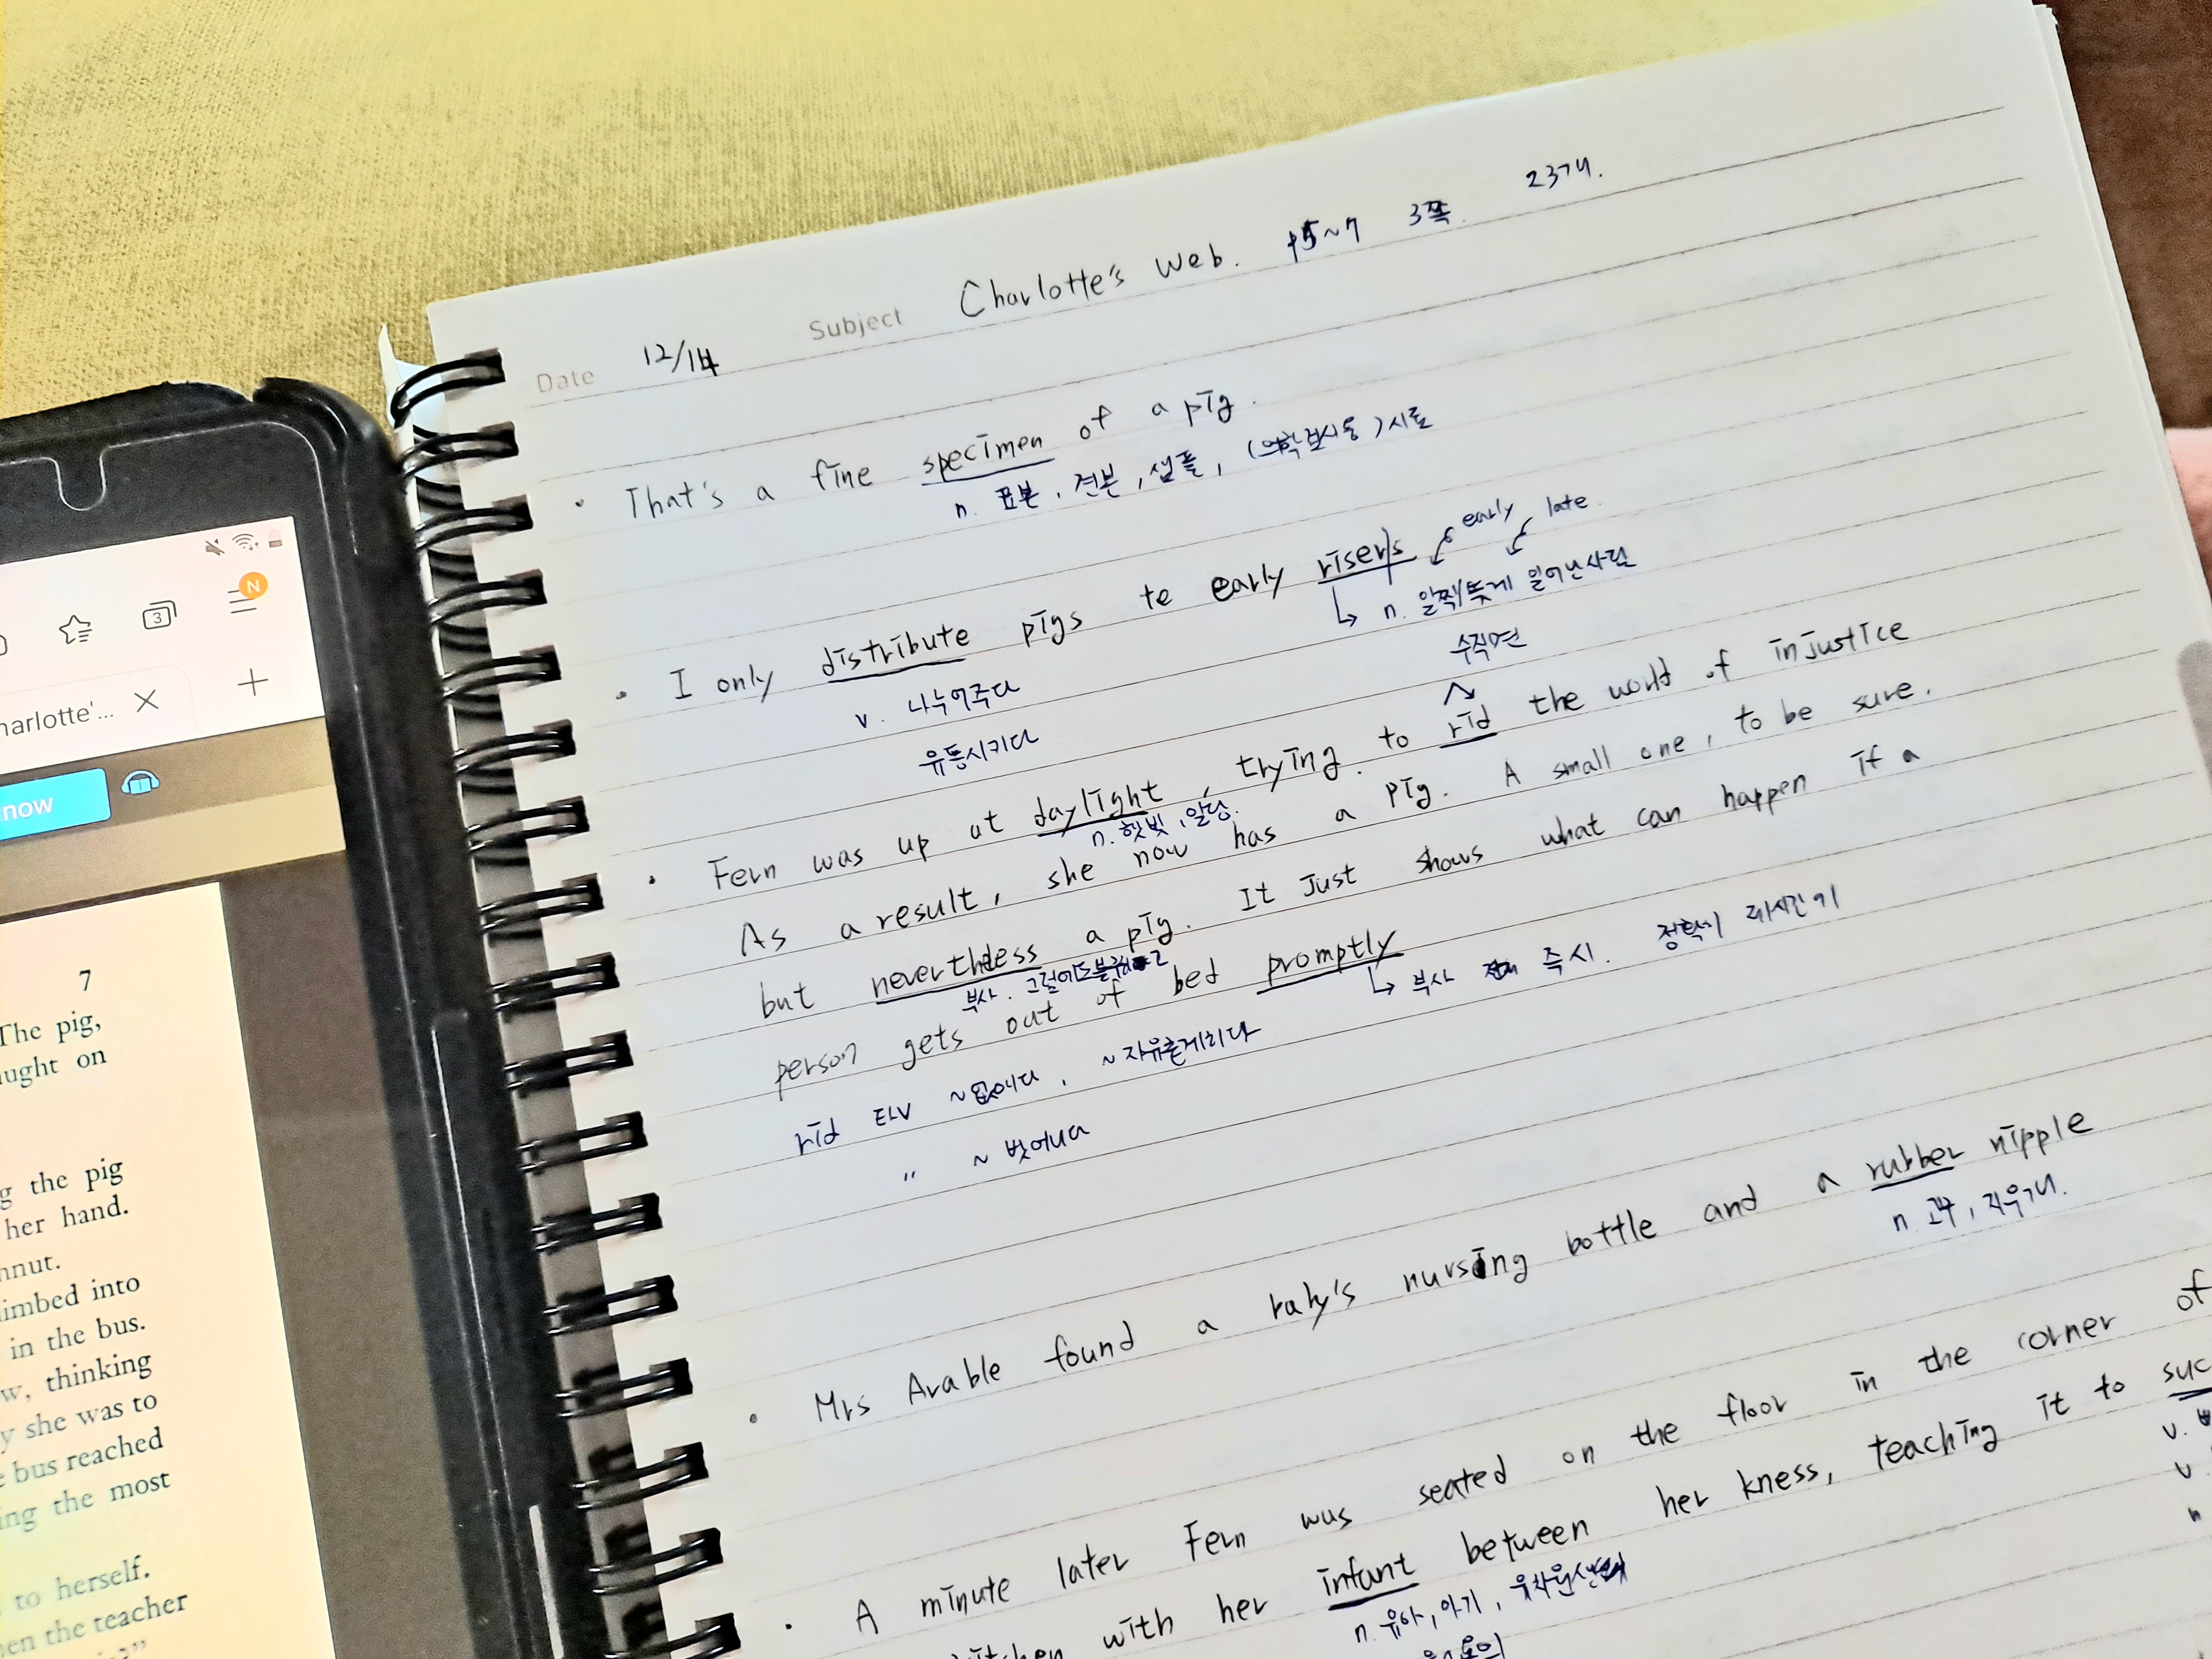 Date 12/14 Subject Charlotte's Web. p5~7 3쪽. 23개.
• That's a fine specimen of a pig.
n. 표본, 견본, 샘플, (의학검사용)시료
early late.
• I only distribute pigs to early risers
v. 나누어주다
→ n. 일찍/늦게 일어난사람
유통시키다
수직면
• Fern was up at daylight, trying to rid the world of injustice
n. 햇빛, 일광.
As a result, she now has a pig. A small one, to be sure.
but nevertheless a pig. It Just shows what can happen if a
부사.
person gets out of bed promptly
→ 부사 즉시. 정확히 제시간에
rid ~없애다, ~자유롭게하다
" ~ 벗어나다
• Mrs Arable found a raby's nursing bottle and a rubber nipple
n. 고무, 지우개.
• A minute later Fern was seated on the floor in the corner of
kitchen with her infant between her kness, teaching it to suc
n. 유아, 아기,
v.
v.
n
3
N
harlotte'...
now
7
The pig,
ught on
g the pig
her hand.
nnut.
limbed into
in the bus.
w, thinking
y she was to
e bus reached
ing the most
to herself.
en the teacher